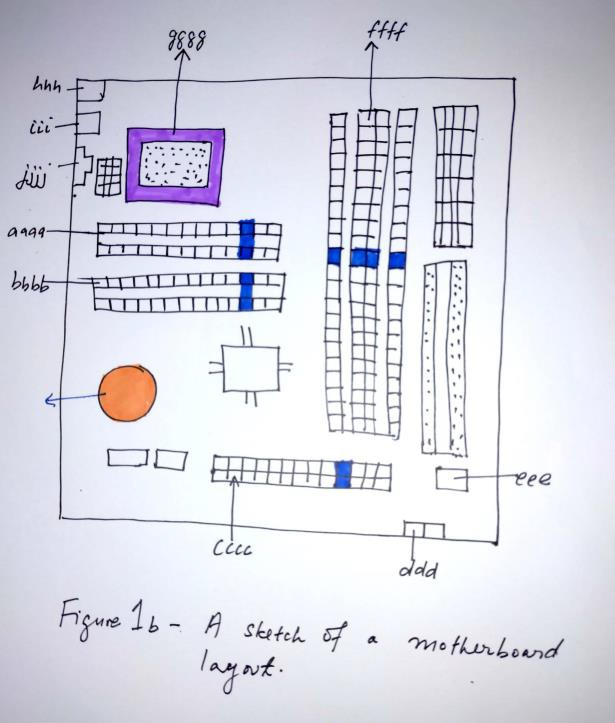 gggg
ffff
hhh
iii
jjj
aaaa
bbbb
eee
cccc
ddd
Figure 1b - A sketch of a motherboard
layout.